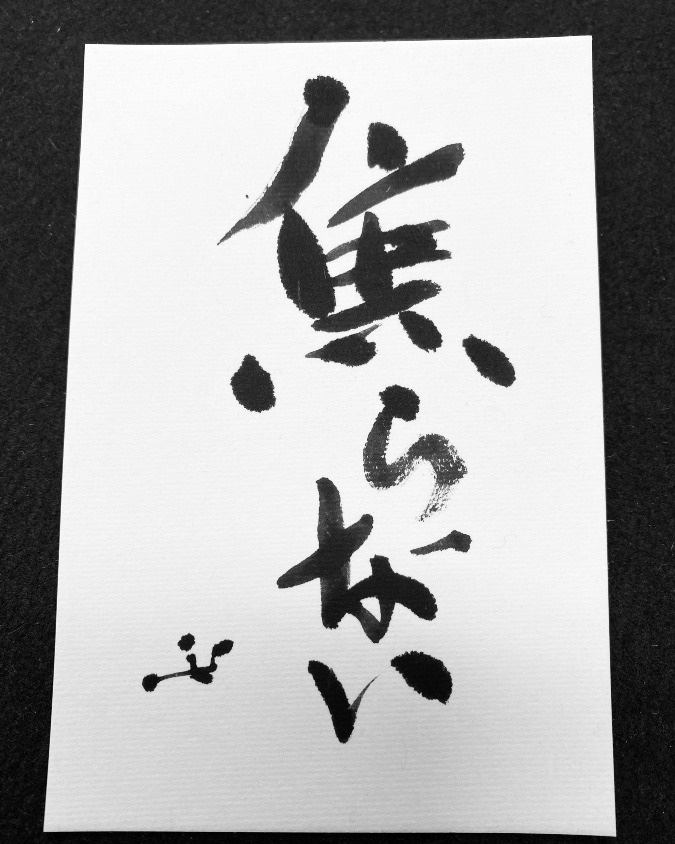 焦らない